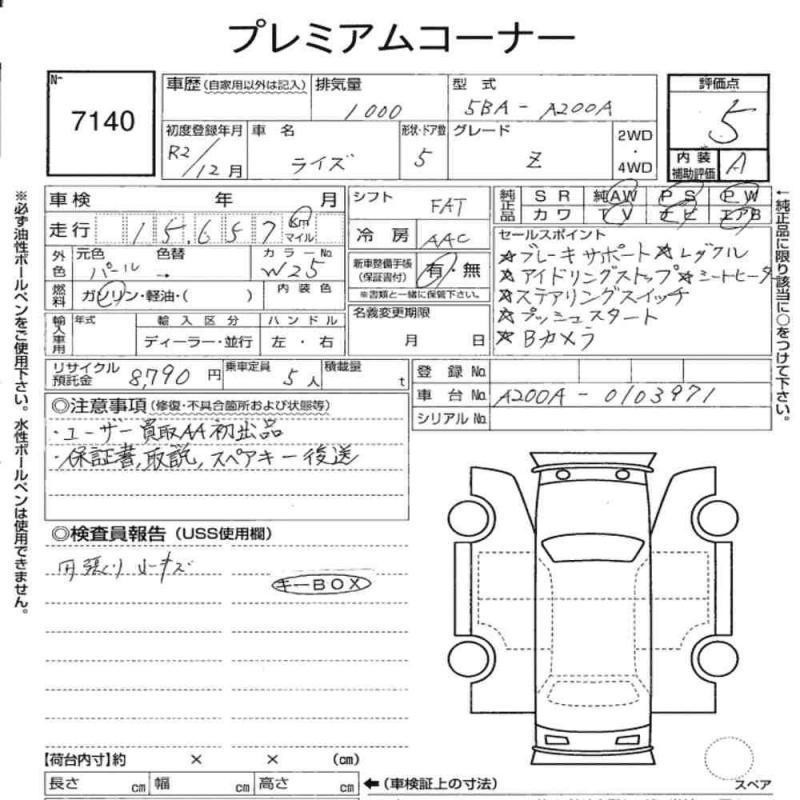 プレミアムコーナー
No 7140
車歴 (自家用以外は記入) 排気量 1000 型式 5BA-A200A 評価点 5
初度登録年月 R2/12月 車名 ライズ 形状・ドア数 5 グレード Z 2WD・4WD
内装補助評価 A
車検 年 月 シフト FAT 純正品 SR 純AW PS PW
走行 15,657 Km マイル カワ TV ナビ エアB
冷房 AAC
セールスポイント
外色 元色 パール 色替 → カラーNo. W25
新車整備手帳(保証書付) 有・無
※書類と一緒に保管下さい。
☆ブレーキサポート ☆レグクル
☆アイドリングストップ ☆シートヒーター
☆ステアリングスイッチ
☆プッシュスタート
☆Bカメラ
燃料 ガソリン・軽油・( ) 内装色
輸入車用 年式 輸入区分 ハンドル
ディーラー・並行 左・右
名義変更期限
月 日
リサイクル預託金 8,790円 乗車定員 5人 積載量 t
登録No.
車台No. A200A-0103971
シリアルNo.
◎注意事項(修復・不具合箇所および状態等)
・ユーザー買取AA初出品
・保証書,取説,スペアキー後送
◎検査員報告(USS使用欄)
キーBOX
【荷台内寸】約 × × (cm)
長さ cm 幅 cm 高さ cm ←(車検証上の寸法)
スペア
※必ず油性ボールペンをご使用下さい。水性ボールペンは使用できません。
←純正品に限り該当に○をつけて下さい。